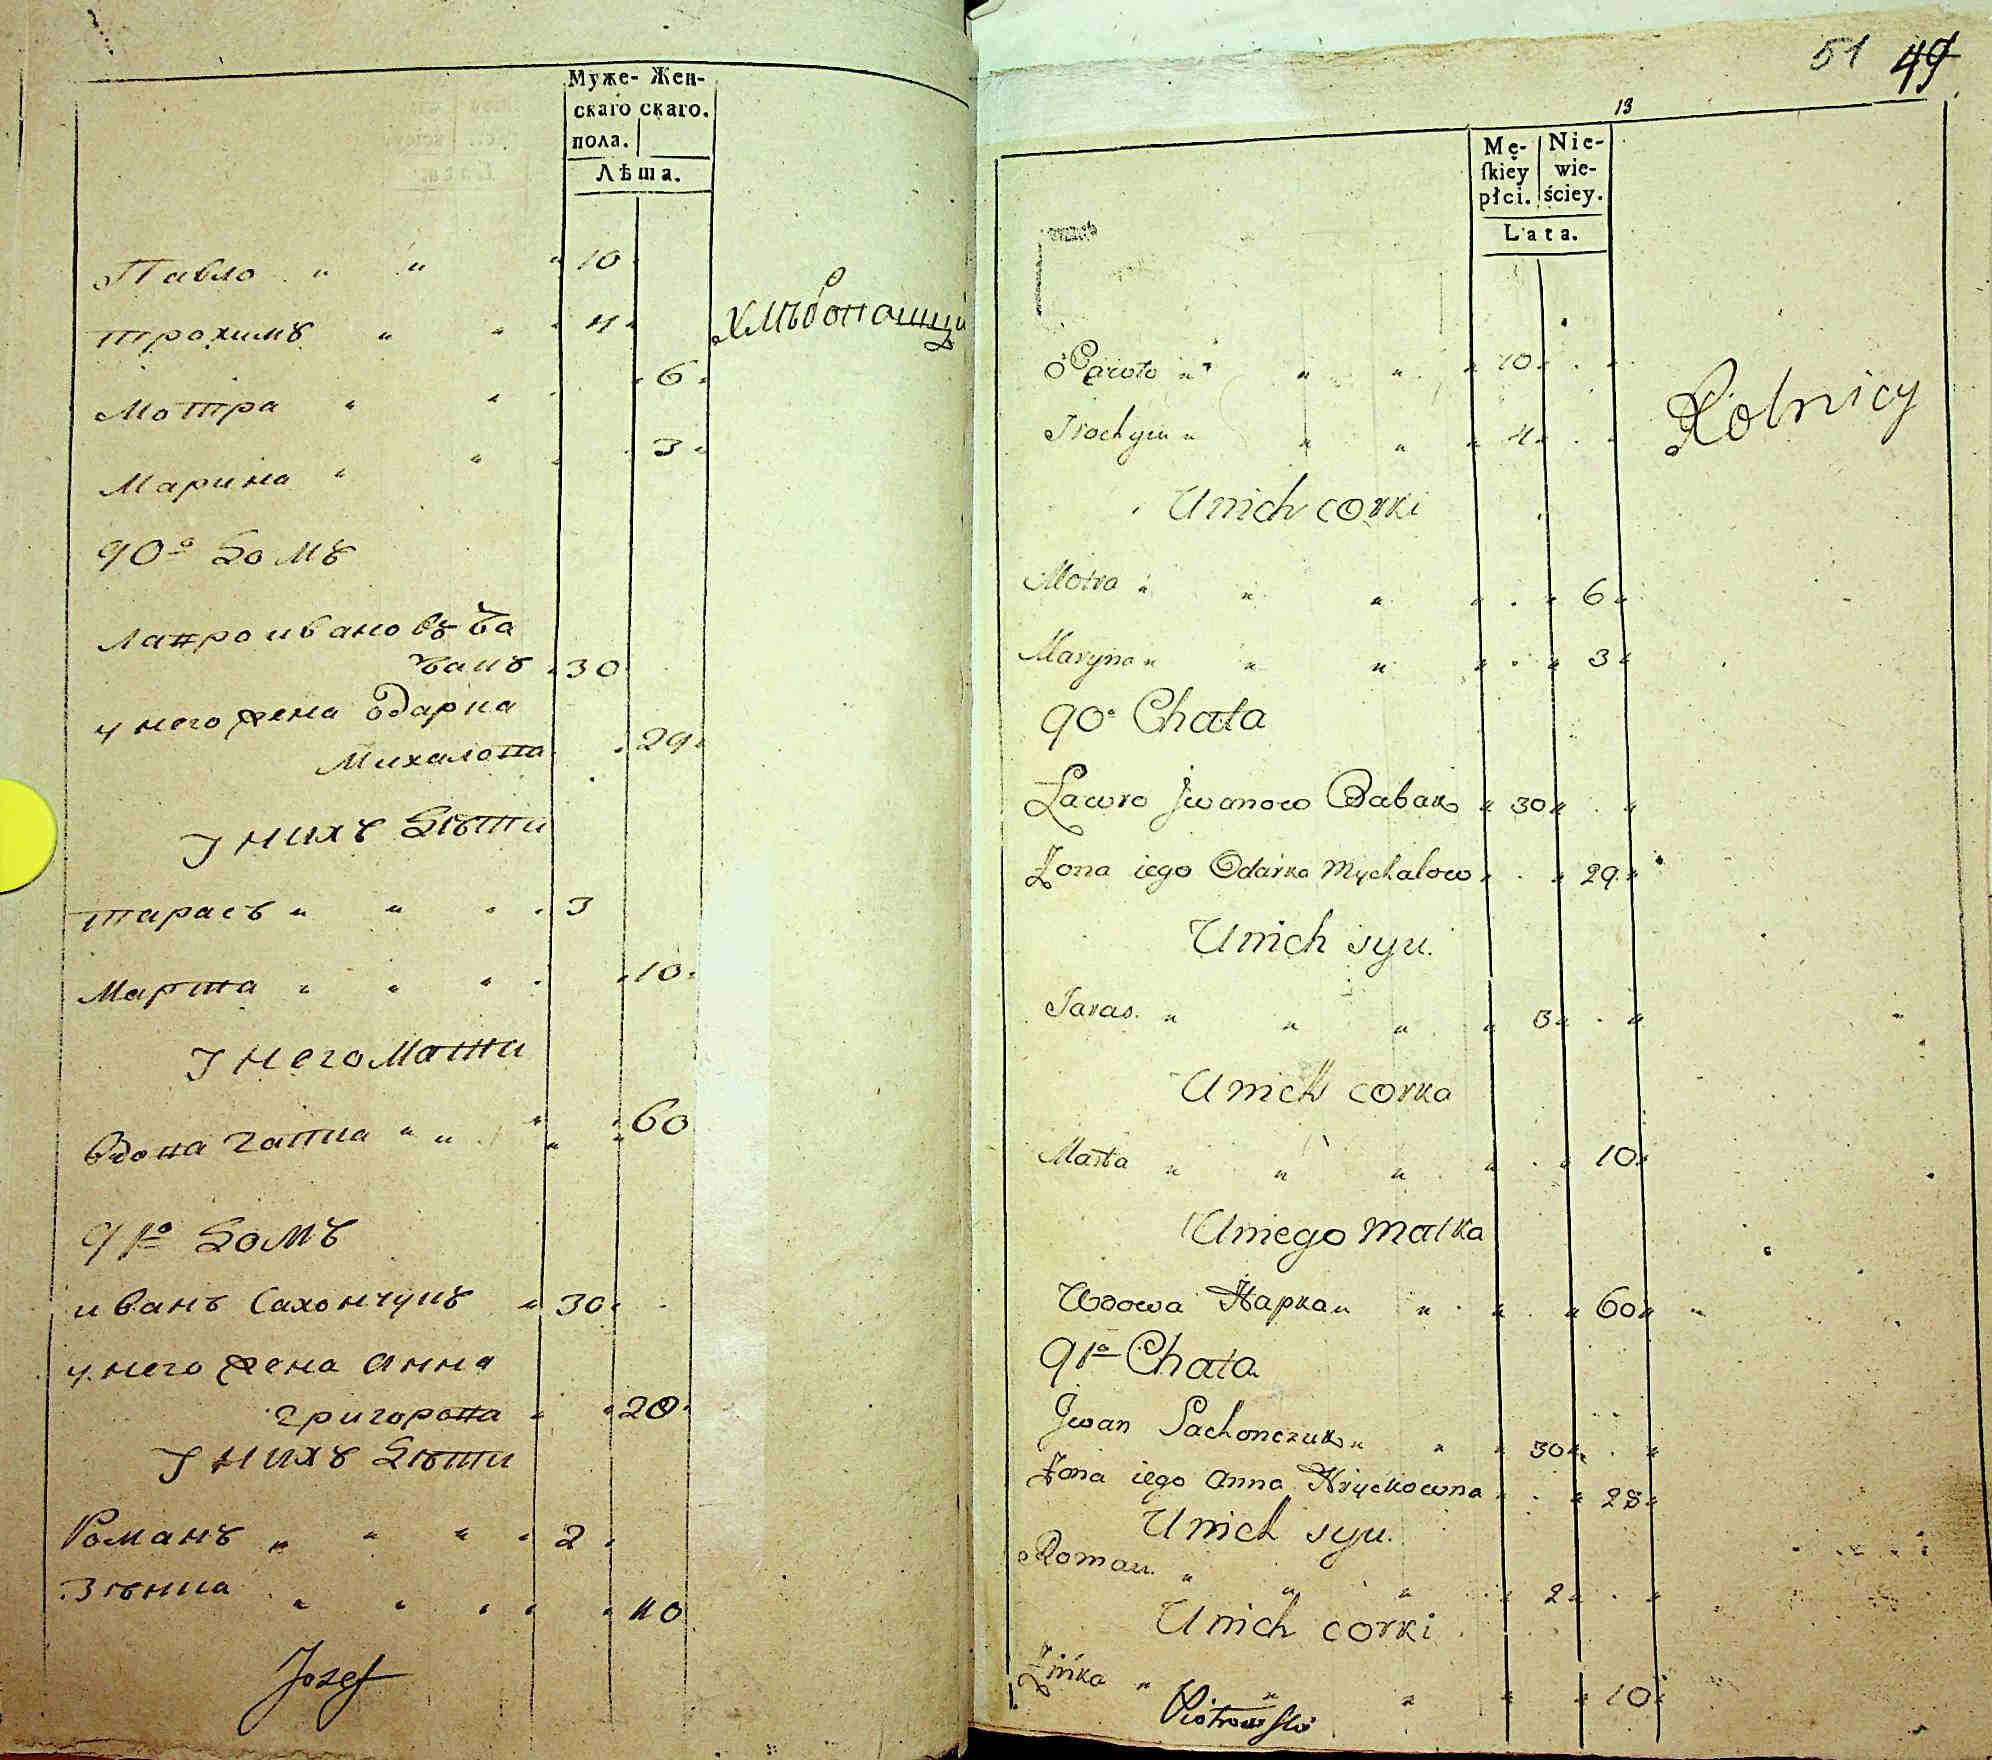 Муже- Жен-
скаго скаго.
пола.
Лѣта.
Павло " " " 10
Трохимъ " " " 4 "
хлѣбопашцы
Мотра " " " 6 "
Марина " " " 3 "
90о Домъ
Лавро ивановъ ба
бакъ " 30
у него жена Одарка
Михалова " 29 "
У нихъ дѣти
Тарасъ " " " " 3
Марта " " " " 10 "
У него Мати
Вдова гапка " " " " 60
91о Домъ
иванъ Сахончукъ " 30 "
у него жена анна
григорова " " 28 "
У нихъ дѣти
Романъ " " " " 2 "
Зѣнка " " " " " 10
Jozef
51 49
13
Mę- Nie-
ſkiey wie-
płci. ściey.
Lata.
Pawło " " " " 10 " . "
Trochym " " " " 4 " . "
Rolnicy
U nich corki
Motra " " " " . " 6 "
Maryna " " " " . " 3 "
90o Chata
Ławro Jwanow Babak " 30 " . "
Żona iego Odarka Mychałow " . " 29 "
U nich syn.
Taras. " " " " 3 " . "
U nich corka
Marta " " " " . " 10 "
U niego matka
Wdowa Hapka " " . " . " 60 "
91o Chata
Jwan Sachonczuk " " " 30 " . "
Żona iego Anna Hryckowna " . " 28 "
U nich syn.
Roman. " " " " 2 " . "
U nich corki
Zińka " " " " " 10 "
Piotrowſki